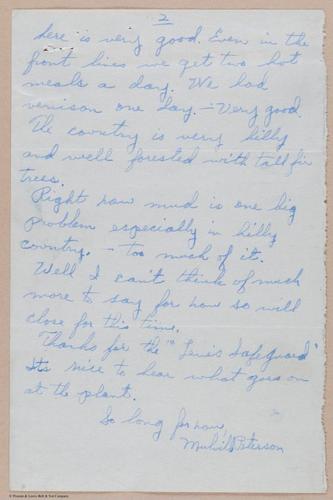 2
here is very good. Even in the
front lines we get two hot
meals a day. We had
venison one day. — Very good.
The country is very hilly
and well forested with tall fir
trees.
Right now mud is one big
problem especially in hilly
country. — too much of it.
Well I can't think of much
more to say for now so will
close for this time.
Thanks for the "Lewis Safeguard"
Its nice to hear what goes on
at the plant.
So long for now,
Peterson
© Thomas & Lowry Bell & Ted Company